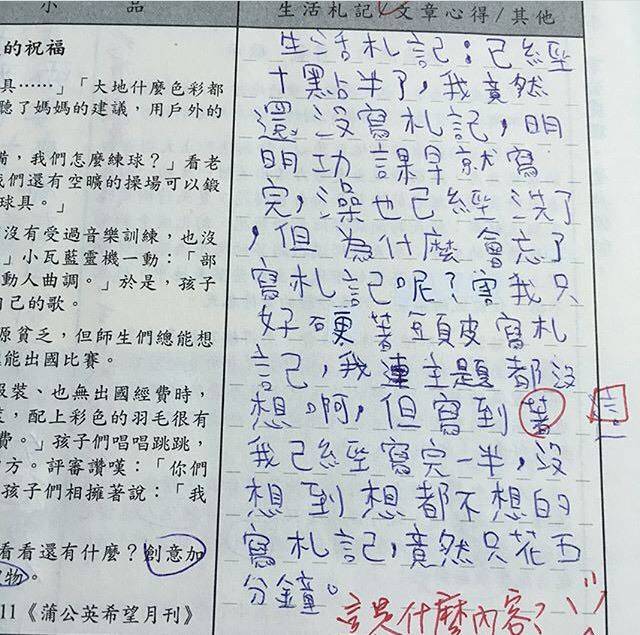 小 品
的祝福
具……」「大地什麼色彩都
聽了媽媽的建議，用戶外的
備，我們怎麼練球？」看老
我們還有空曠的操場可以鍛
球具。」
沒有受過音樂訓練，也沒
」小瓦藍靈機一動：「部
動人曲調。」於是，孩子
自己的歌。
源貧乏，但師生們總能想
能出國比賽。
服裝、也無出國經費時，
，配上彩色的羽毛很有
費。」孩子們唱唱跳跳，
方。評審讚嘆：「你們
孩子們相擁著說：「我
看看還有什麼？創意加
物。
11《蒲公英希望月刊》
生活札記/文章心得/其他
生活札記：已經
十點半了，我竟然
還沒寫札記，明
明功課早就寫
完，澡也已經洗了
，但為什麼會忘了
寫札記呢？害我只
好硬著頭皮寫札
記，我連主題都沒
想啊，但寫到著
我已經寫完一半，沒
想到想都不想的
寫札記，竟然只花五
分鐘。
這是什麼內容？